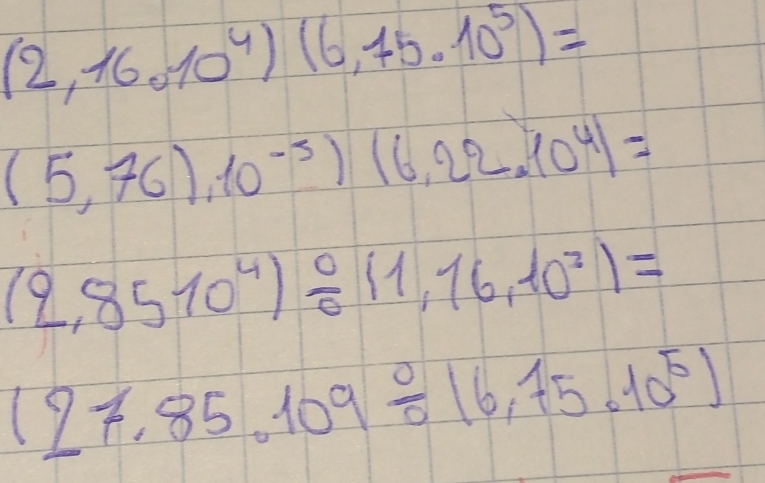 (2,16.10⁴) (6,75.10⁵)=
(5,76).10⁻³) (6,22.10⁴)=
(2,85 10⁴) ÷ (1,16,10³)=
(27.85.10⁹ ÷ (6,75.10⁵)